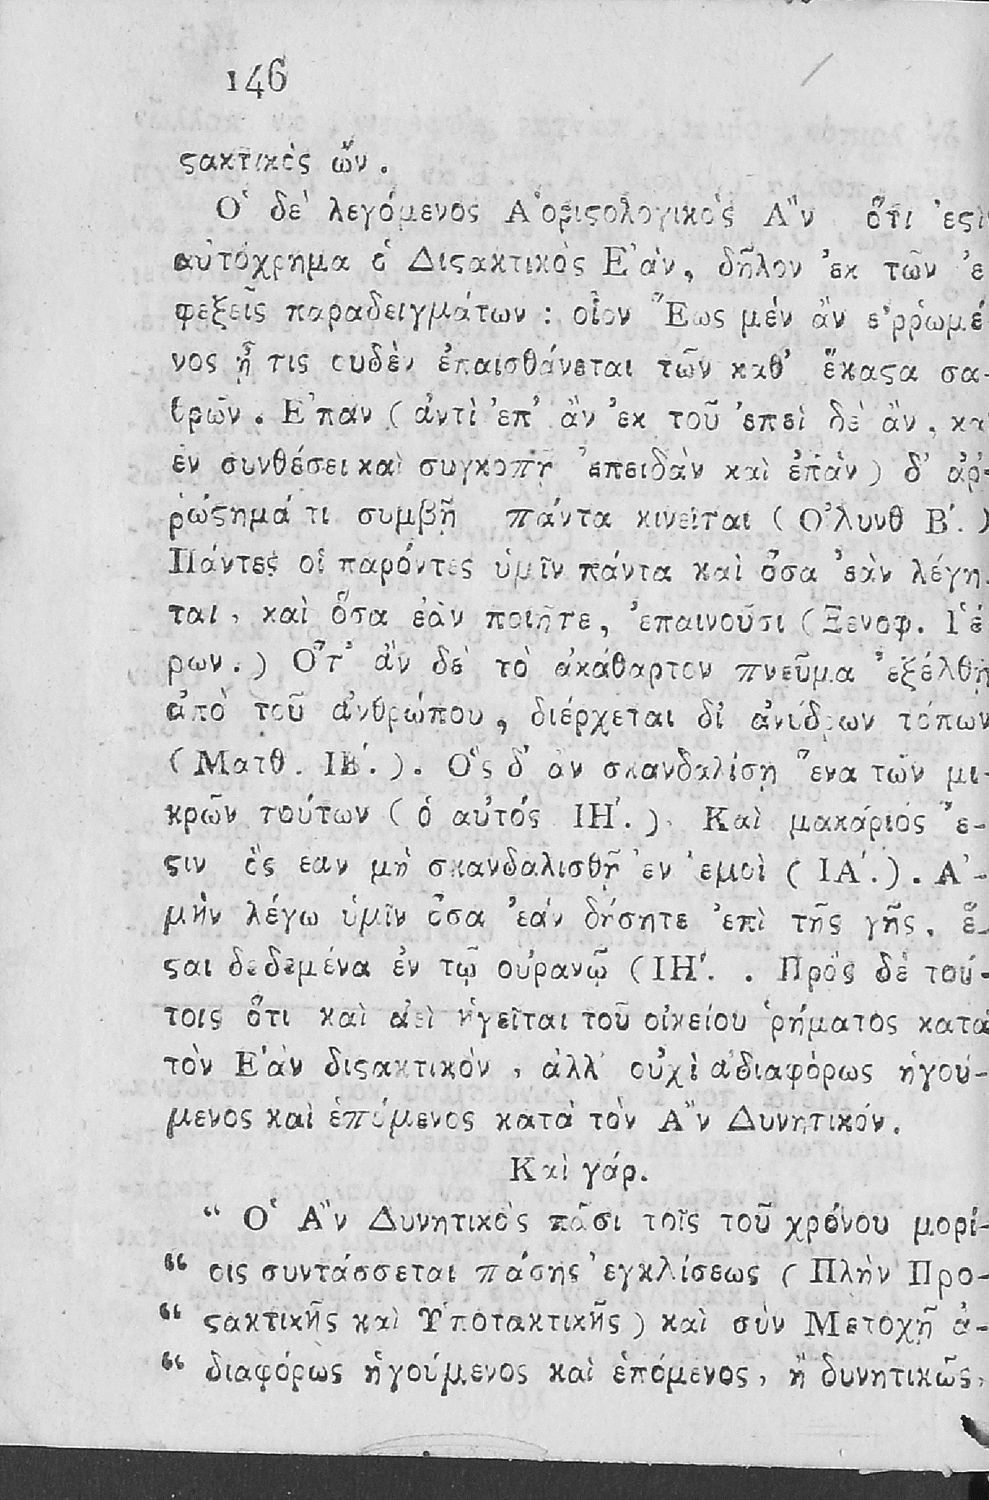 146
ςακτικὸς ὤν.
Ὁ δὲ λεγόμενος Ἀοριςολογικὸς Ἂν ὅτι ἐςὶν
αὐτόχρημα ὁ Διςακτικὸς Ἐὰν, δῆλον ἐκ τῶν ἐ
φεξεῖς παραδειγμάτων : οἷον Ἕως μὲν ἂν ἐῤῥωμέ
νος ᾖ τις οὐδὲν ἐπαισθάνεται τῶν καθ' ἕκαςα σα-
θρῶν. Ἐπὰν (ἀντὶ ἐπ' ἂν ἐκ τοῦ ἐπεὶ δὲ ἂν, κα
ἐν συνθέσει καὶ συγκοπῇ ἐπειδὰν καὶ ἐπὰν) δ' ἀῤ-
ῥώςημά τι συμβῇ πάντα κινεῖται (Ὀλυνθ Β΄.)
Πάντες οἱ παρόντες ὑμῖν πάντα καὶ ὅσα ἐὰν λέγη
ται, καὶ ὅσα ἐὰν ποιῆτε, ἐπαινοῦσι (Ξενοφ. Ἱέ
ρων.) Ὅτ' ἂν δὲ τὸ ἀκάθαρτον πνεῦμα ἐξέλθῃ
ἀπὸ τοῦ ἀνθρώπου, διέρχεται δἰ ἀνύδρων τόπων
(Ματθ. ΙΒ΄.). Ὃς δ' ἀν σκανδαλίσῃ ἕνα τῶν μι-
κρῶν τούτων (ὁ αὐτός ΙΗ΄.). Καὶ μακάριος ἔ-
ςιν ὃς εαν μὴ σκανδαλισθῇ ἐν ἐμοὶ (ΙΑ΄.). Ἀ-
μὴν λέγω ὑμῖν ὅσα ἐὰν δήσητε ἐπὶ τῆς γῆς, ἔ-
ςαι δεδεμένα ἐν τῷ οὐρανῷ (ΙΗ΄. . Πρὸς δὲ τού-
τοις ὅτι καὶ ἀεὶ ἡγεῖται τοῦ οἰκείου ῥήματος κατὰ
τὸν Ἐὰν διςακτικόν, ἀλλ' οὐχὶ ἀδιαφόρως ἡγού-
μενος καὶ ἑπόμενος κατὰ τὸν Ἂν Δυνητικόν.
Καὶ γάρ.
“ Ὁ Ἂν Δυνητικὸς πᾶσι τοῖς τοῦ χρόνου μορί-
“ οις συντάσσεται πάσης ἐγκλίσεως (Πλὴν Προ-
“ ςακτικῆς καὶ Ὑποτακτικῆς) καὶ σὺν Μετοχῇ ἀ-
“ διαφόρως ἡγούμενος καὶ ἑπόμενος, ἢ δυνητικῶς,